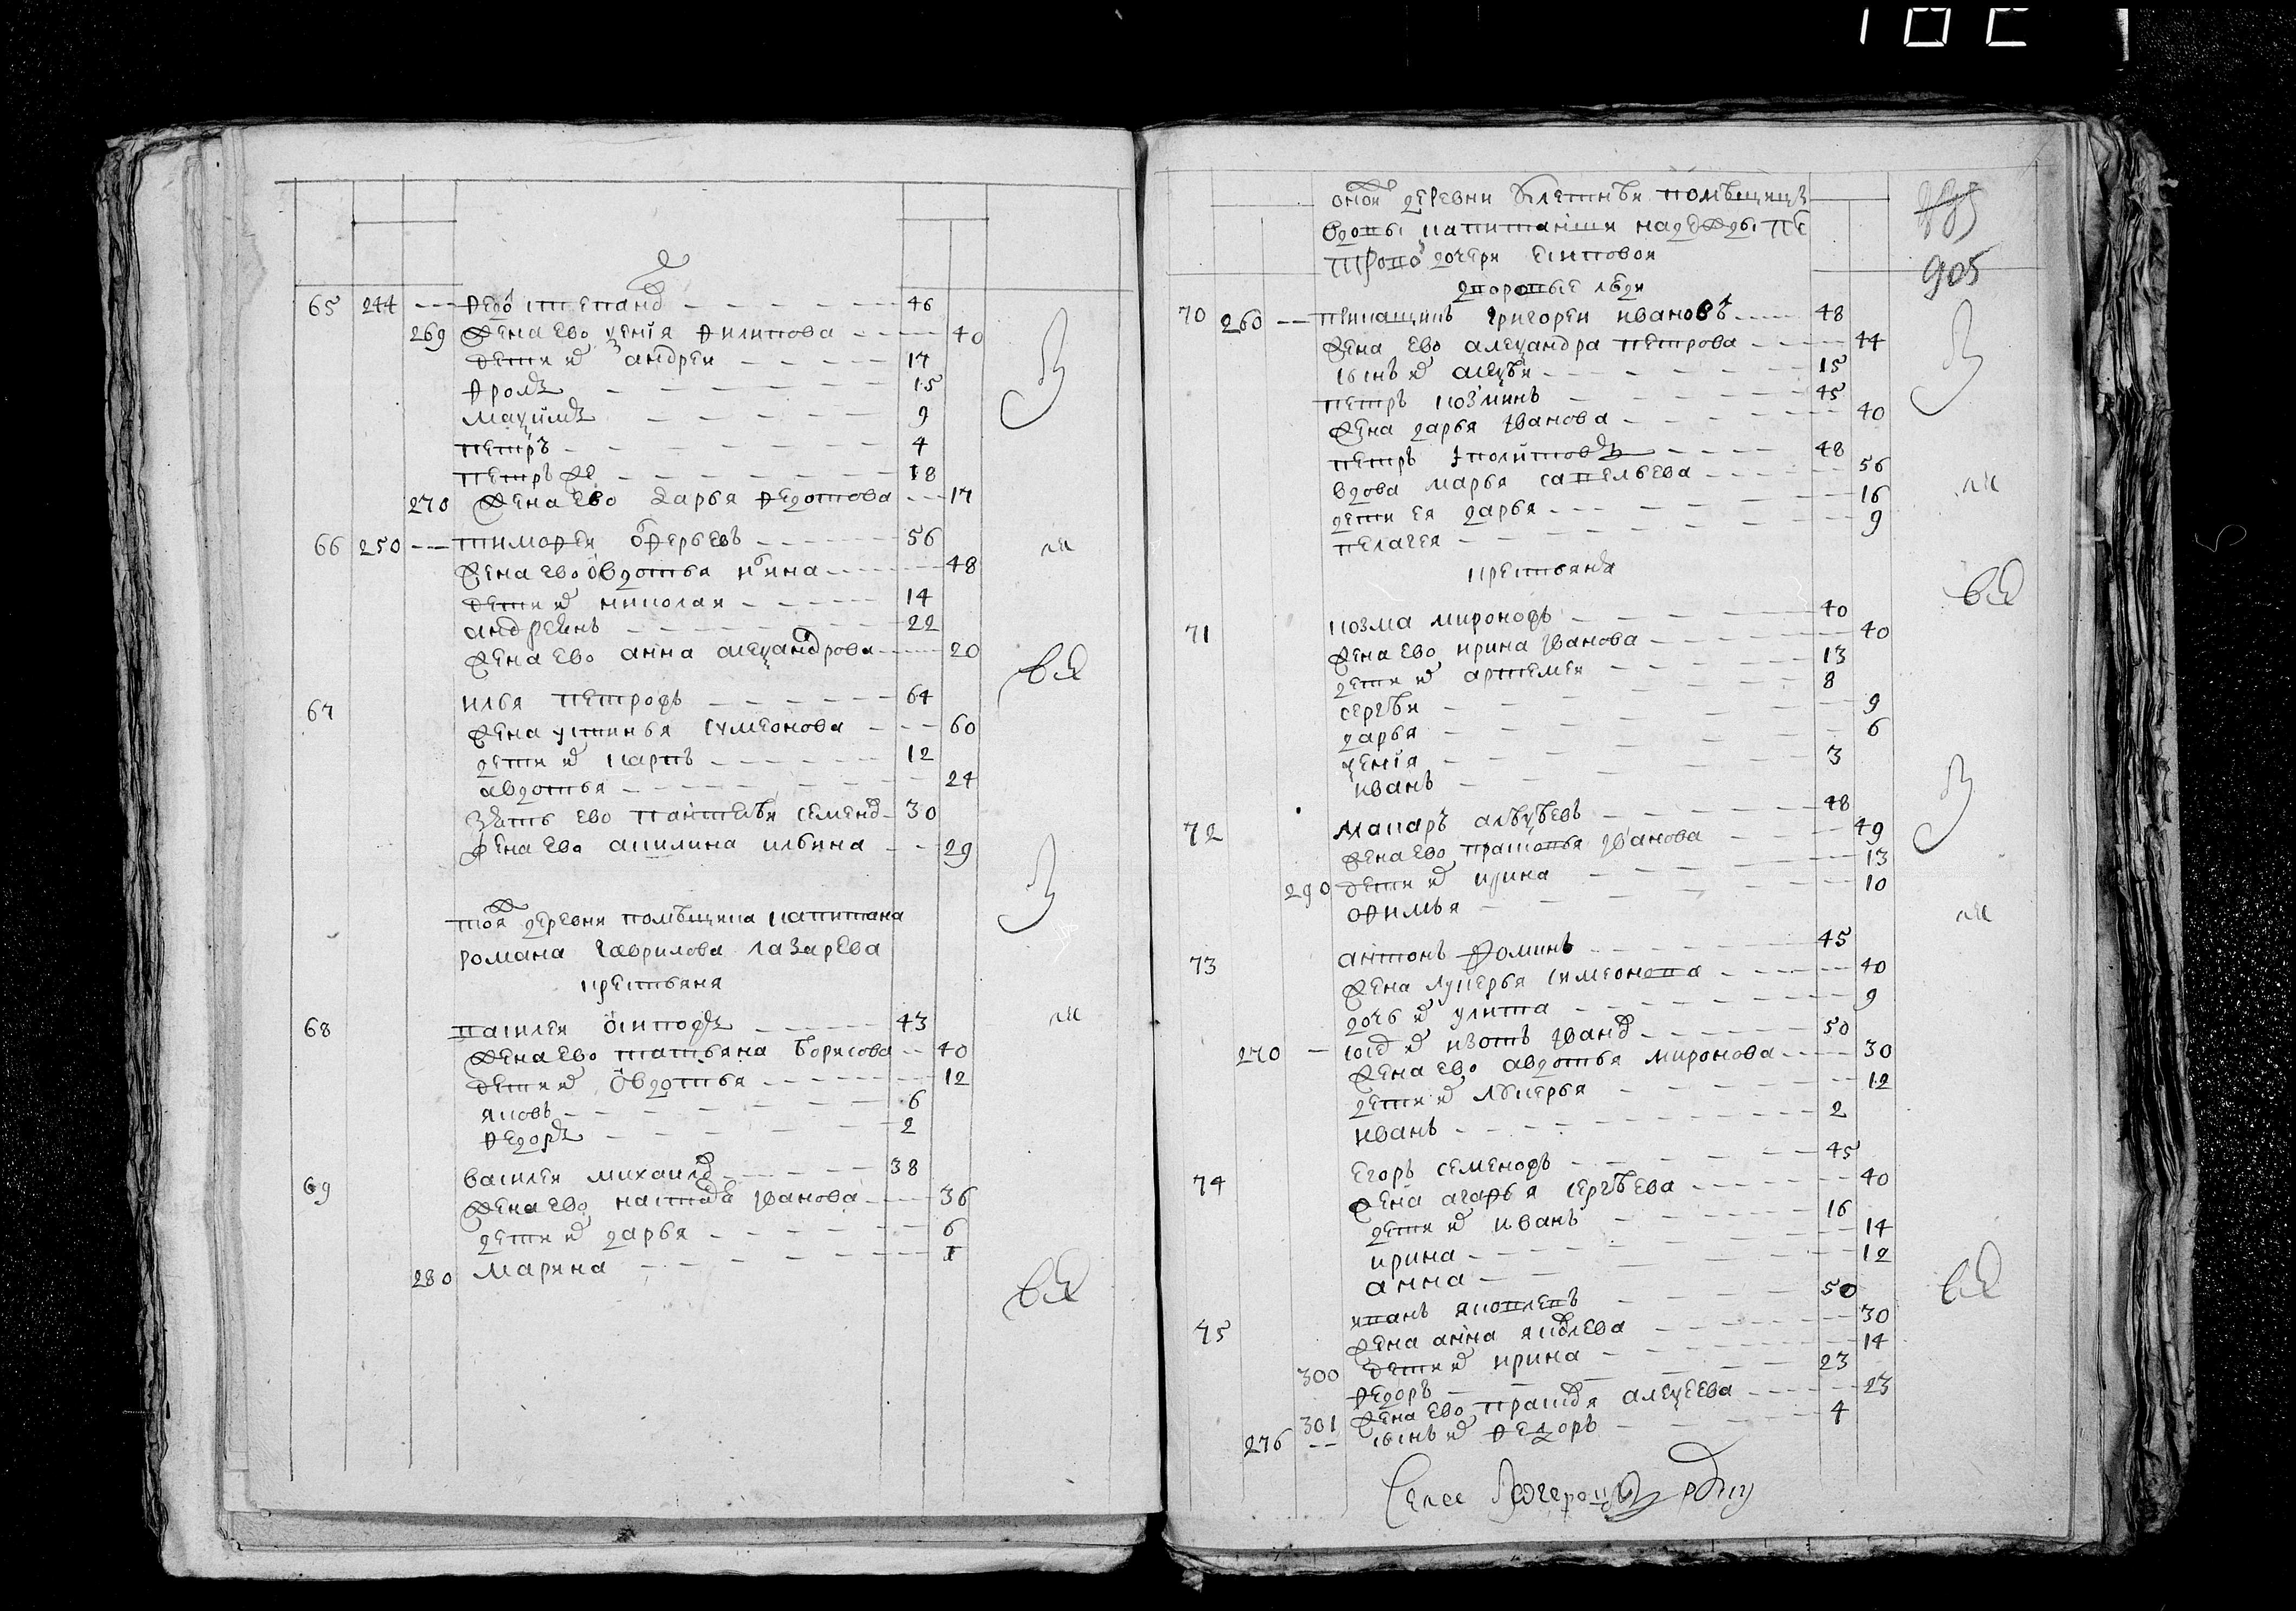 65 244 -- Федо степано 46
269 жена ево ѯенїя филипова 40
дети и андреи 17
фролъ 15
маѯимъ 9
петръ 4
петръ же 18
270 жена ево дарья федотова 17
66 250 -- тимофеи ѡферьевъ 56
жена ево овдотья 48
дети и николаи 14
андреинъ 22
жена ево анна алеѯандрова 20
67 илья петрофъ 64
жена устинья сумеонова 60
дети и карпъ 12
авдотья 24
зять ево пантелѣи семено 30
жена ево акилина ильина 29
тоя ж деревни помѣщика капитана
романа гаврилова лазарева
крестьяня
68 василеи ѡсипофъ 43
жена ево татьяна борисова 40
дети и ѡвдотья 12
яковъ 6
федоръ 2
69 василеи михаило 38
жена ево настася іванова 36
дети и дарья 6
280 марина 1
оной ж деревни помѣщицъ
вдовы капитанши надежды пе
тровой дочери есиповои
905
дворовые люди
70 260 -- григореи ивановъ 48
жена ево алеѯандра петрова 44
сынъ и алеѯѣи 15
петръ козминъ 45
жена дарья іванова 40
петръ іполитовъ 48
вдова марья савельева 56
дети ея дарья 16
пелагея 9
крестьяня
71 козма миронофъ 40
жена ево ирина іванова 40
дети и артемеи 13
сергѣи 8
дарья 9
ѯенїя 6
иванъ 3
72 макаръ алѣѯѣевъ 48
жена ево прасковья іванова 49
290 дети и ирина 13
офимья 10
73 антонъ фоминъ 45
жена лукерья симеонова 40
дочь и улита 9
270 -- сосе и изотъ івано 50
жена ево авдотья миронова 30
дети и лукерья 12
иванъ 2
74 егоръ семенофъ 45
жена агафья сергѣева 40
дети и иванъ 16
ирина 14
анна 12
75 иванъ яковлевъ 50
жена анна яковлева 30
300 дети и ирина 14
федоръ 23
301 жена ево прасковя алеѯеева 23
276 -- сынъ и федоръ 4